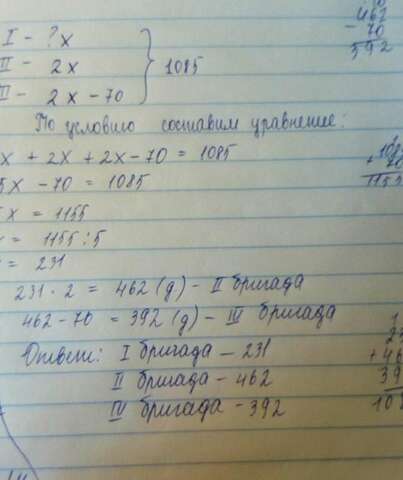 I - ? x
II - 2x } 1085
II - 2x - 70
462
- 70
392
По условию составим уравнение:
x + 2x + 2x - 70 = 1085
5x - 70 = 1085
1085
+ 70
1155
5x = 1155
= 1155 : 5
= 231
231 · 2 = 462 (д) - II бригада
462 - 70 = 392 (д) - III бригада
Ответ: I бригада - 231
II бригада - 462
III бригада - 392